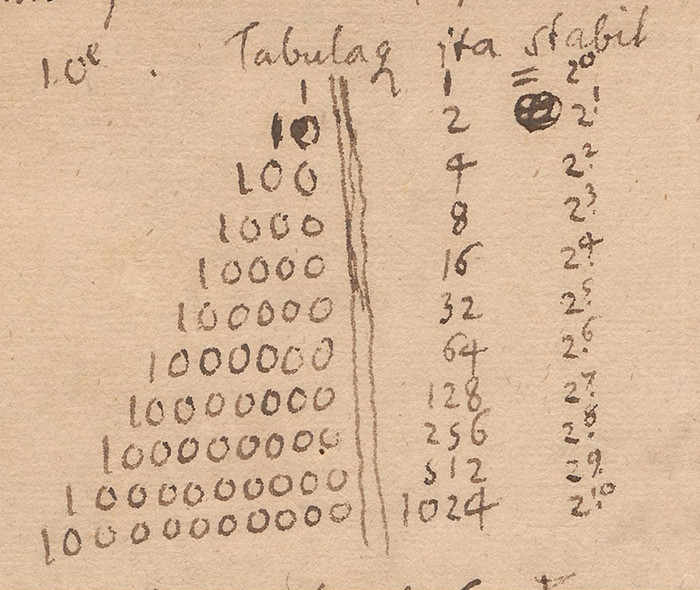 10e . Tabulaq ita stabil
1 1 = 2^0
10 2 2^1
100 4 2^2
1000 8 2^3
10000 16 2^4
100000 32 2^5
1000000 64 2^6
10000000 128 2^7
100000000 256 2^8
1000000000 512 2^9
10000000000 1024 2^10